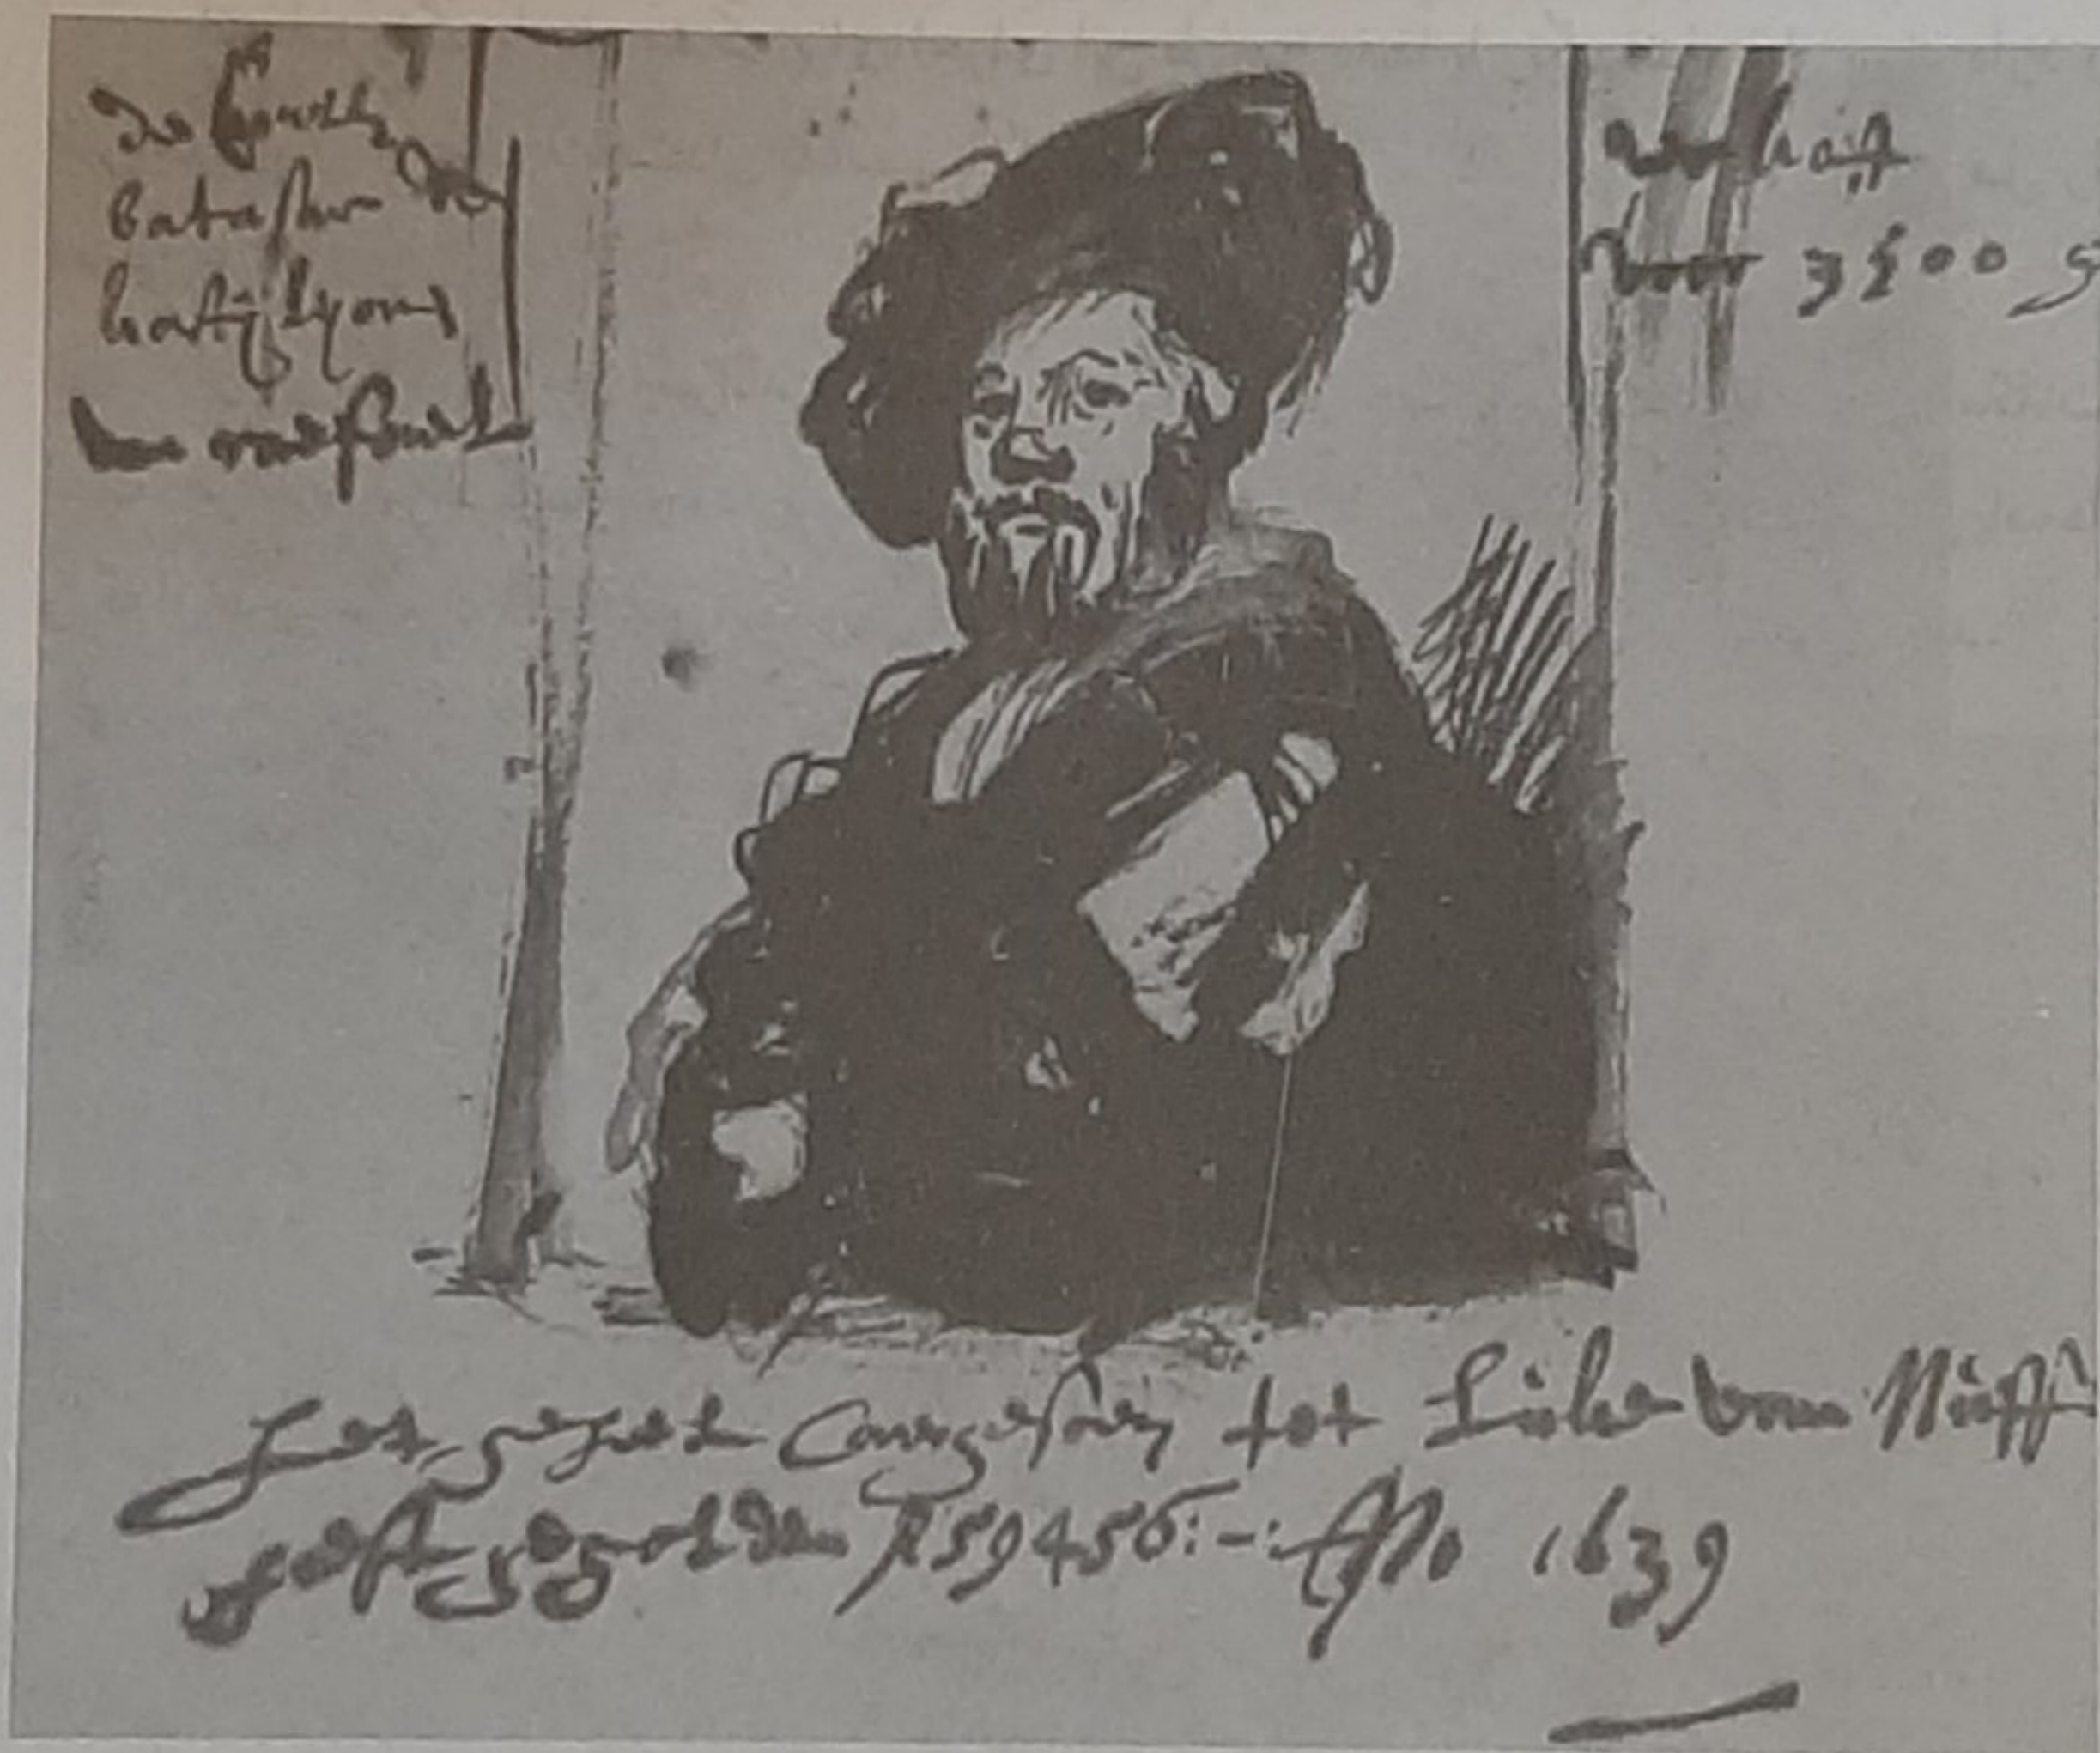 de Conte
batasar de
kastylyone
van rafael
verkoft
voor 3500 g
het geheel Caergesoen tot Luke van Nuffe
heeft gegolden f 59456:-: Ano 1639